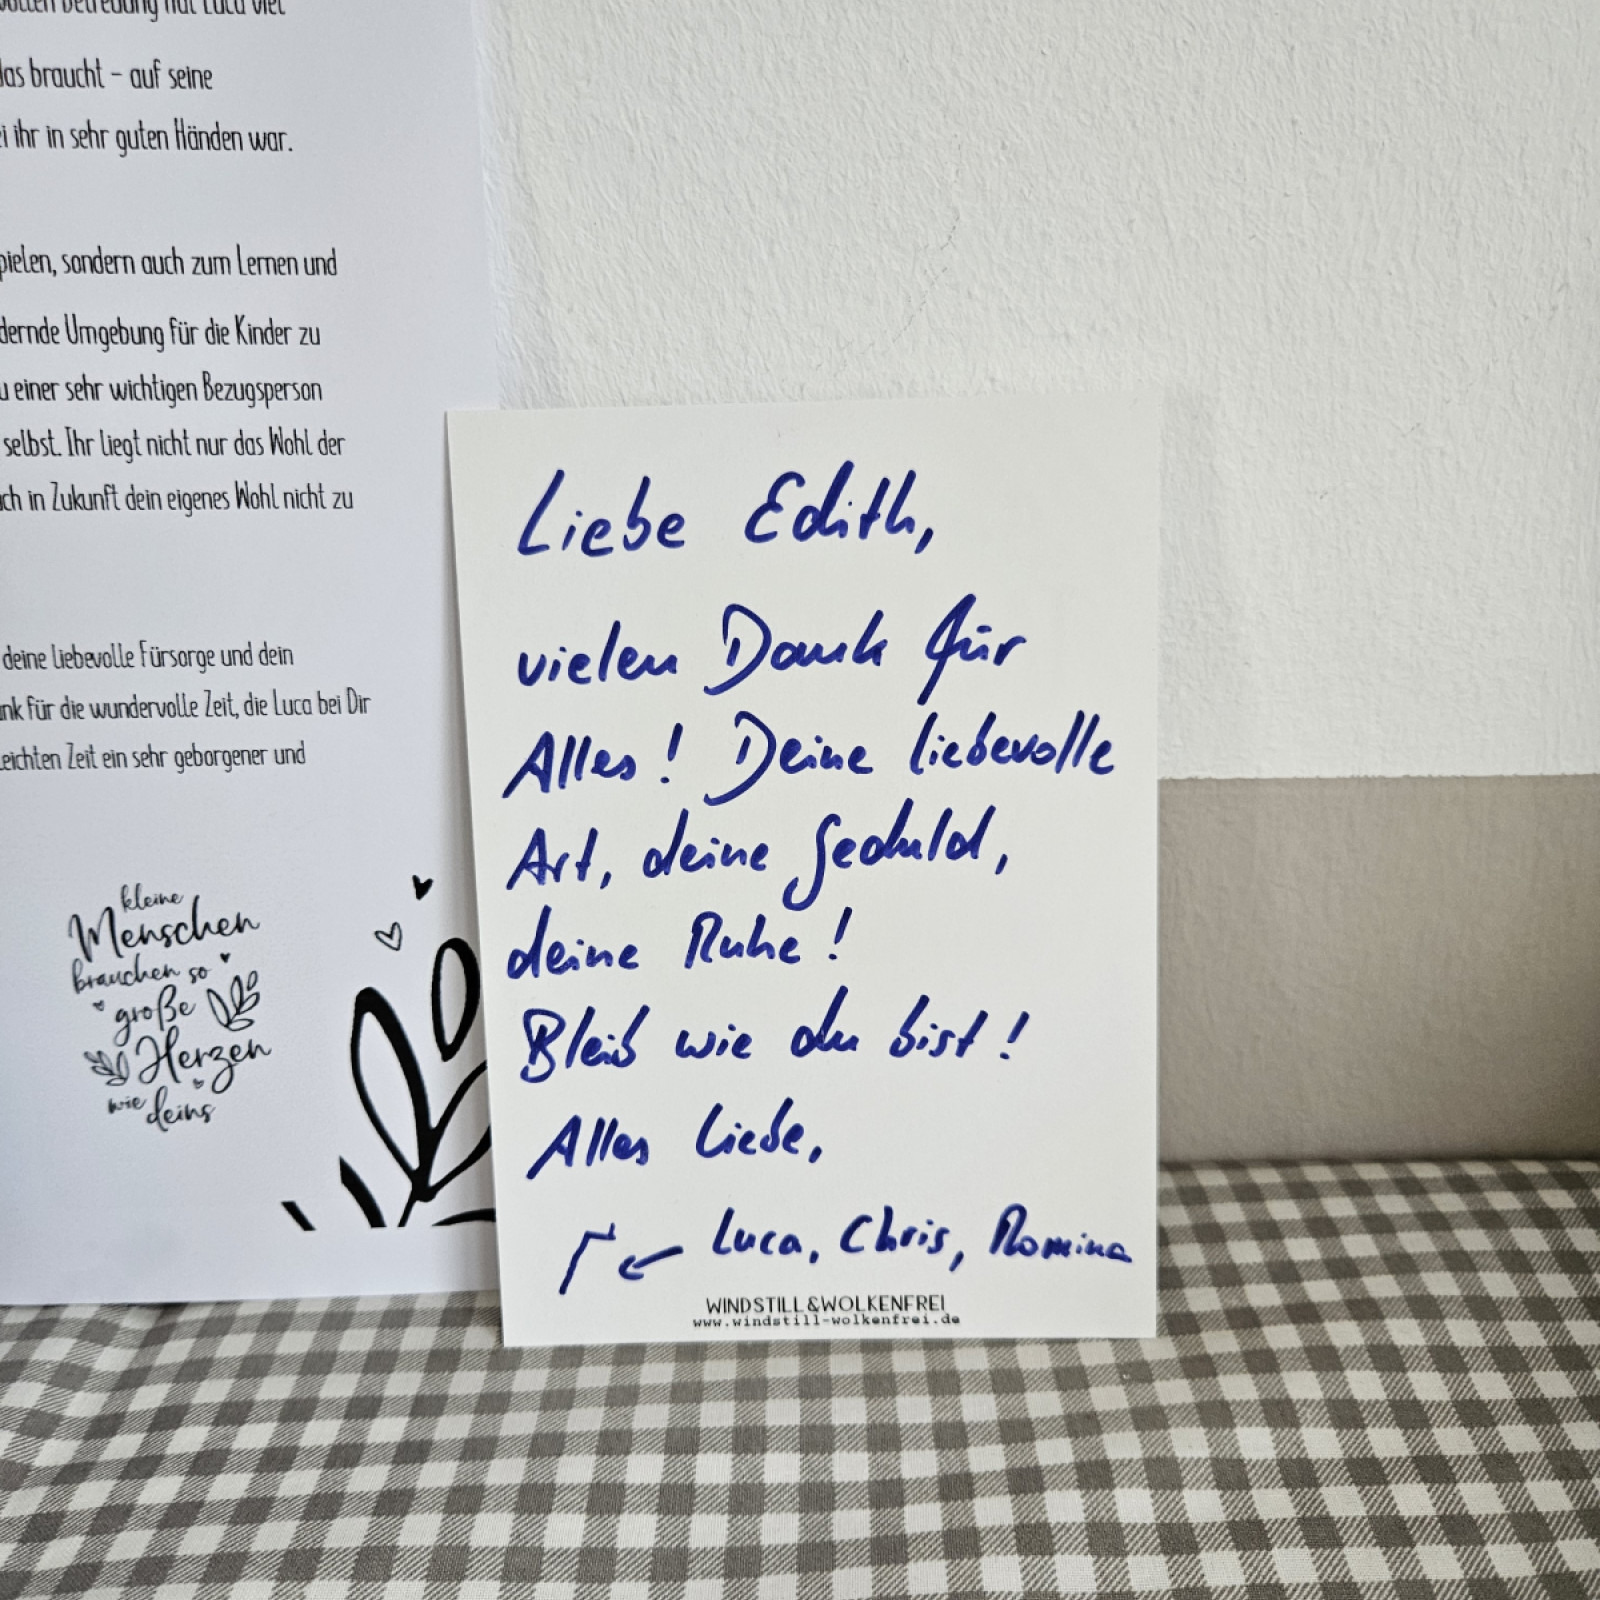 vollen Betreuung hat Luca viel
das braucht – auf seine
ei ihr in sehr guten Händen war.
pielen, sondern auch zum Lernen und
dernde Umgebung für die Kinder zu
u einer sehr wichtigen Bezugsperson
selbst. Ihr liegt nicht nur das Wohl der
ch in Zukunft dein eigenes Wohl nicht zu
deine liebevolle Fürsorge und dein
nk für die wundervolle Zeit, die Luca bei Dir
leichten Zeit ein sehr geborgener und
kleine
Menschen
brauchen so
große
Herzen
wie deins
Liebe Edith,
vielen Dank für
Alles! Deine liebevolle
Art, deine Geduld,
deine Ruhe!
Bleib wie du bist!
Alles Liebe,
Luca, Chris, Romina
WINDSTILL&WOLKENFREI
www.windstill-wolkenfrei.de